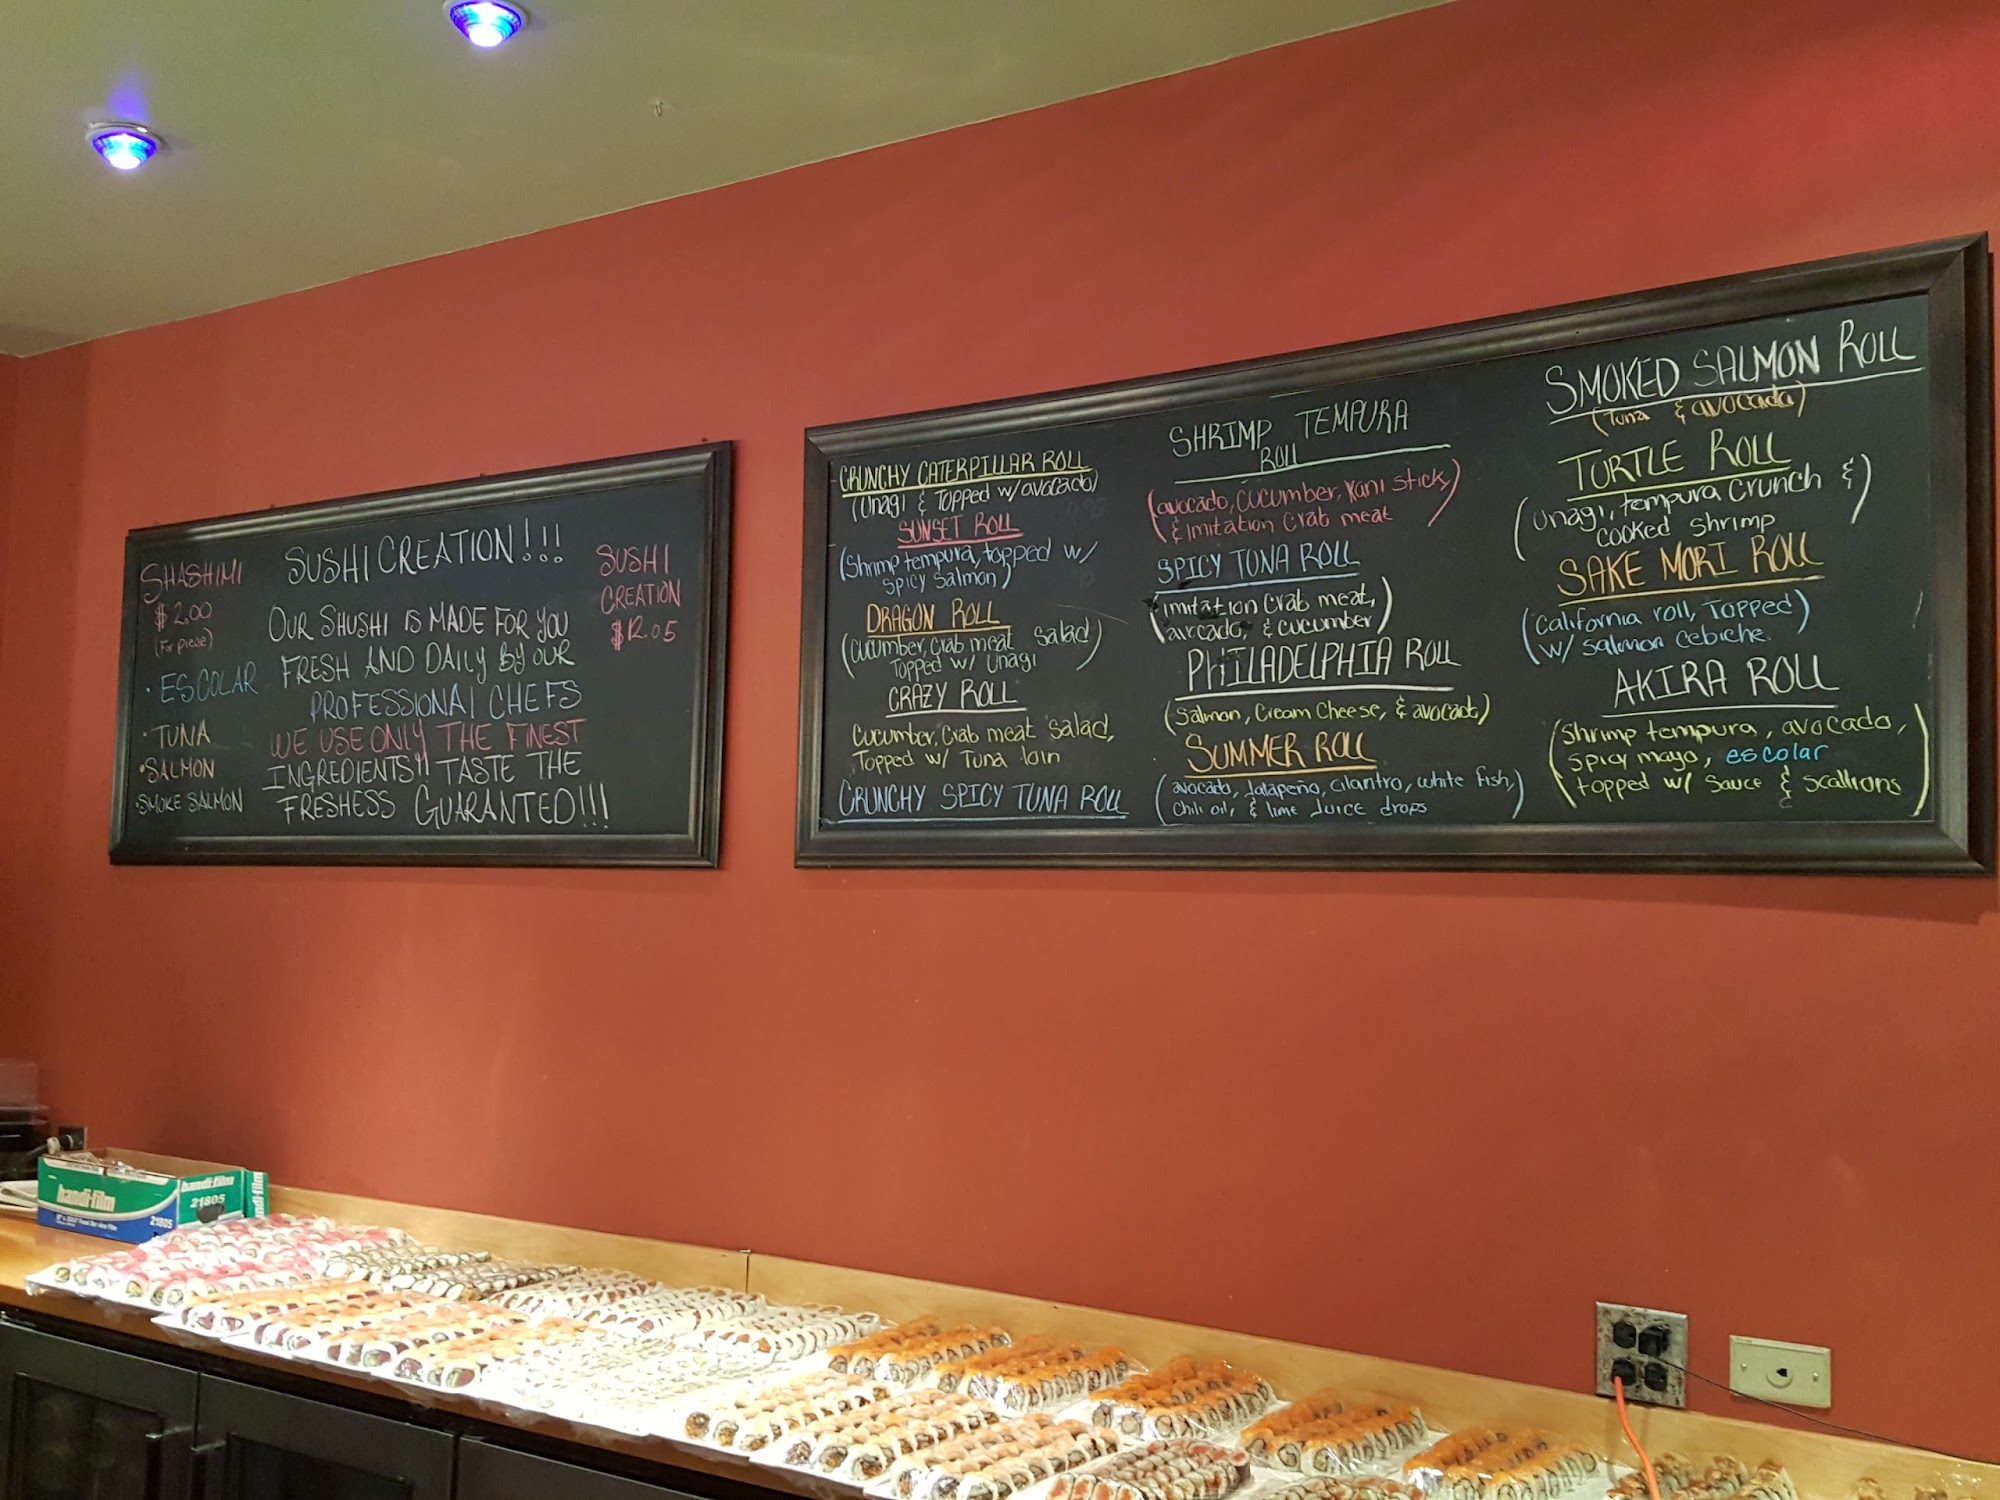 SHASHIMI
$2.00
(For piece)
· ESCOLAR
· TUNA
· SALMON
· SMOKE SALMON
SUSHI CREATION!!!
OUR SHUSHI IS MADE FOR YOU
FRESH AND DAILY BY OUR
PROFESSIONAL CHEFS
WE USE ONLY THE FINEST
INGREDIENTS!! TASTE THE
FRESHESS GUARANTED!!!
SUSHI
CREATION
$12.05
CRUNCHY CATERPILLAR ROLL
(Unagi & Topped w/ avocado)
SUNSET ROLL
(Shrimp tempura, topped w/
spicy salmon)
DRAGON ROLL
(Cucumber, Crab meat Salad
Topped w/ Unagi
CRAZY ROLL
Cucumber, Crab meat Salad,
Topped w/ Tuna loin
CRUNCHY SPICY TUNA ROLL
SHRIMP TEMPURA
ROLL
(avocado, cucumber, Kani stick,
& imitation crab meat
SPICY TUNA ROLL
(imitation crab meat,
avrcado, & cucumber)
PHILADELPHIA ROLL
(Salmon, Cream Cheese, & avocado)
SUMMER ROLL
(avocado, Jalapeño, cilantro, white fish,
chili oil, & lime juice drops
SMOKED SALMON ROLL
(Tuna & avocado)
TURTLE ROLL
(Unagi, tempura crunch &
cooked shrimp
SAKE MORI ROLL
(California roll, Topped)
w/ salmon cebiche
AKIRA ROLL
(Shrimp tempura, avocado,
spicy mayo, escolar
topped w/ sauce & scallions
handi-film
21805
handi-film
21805